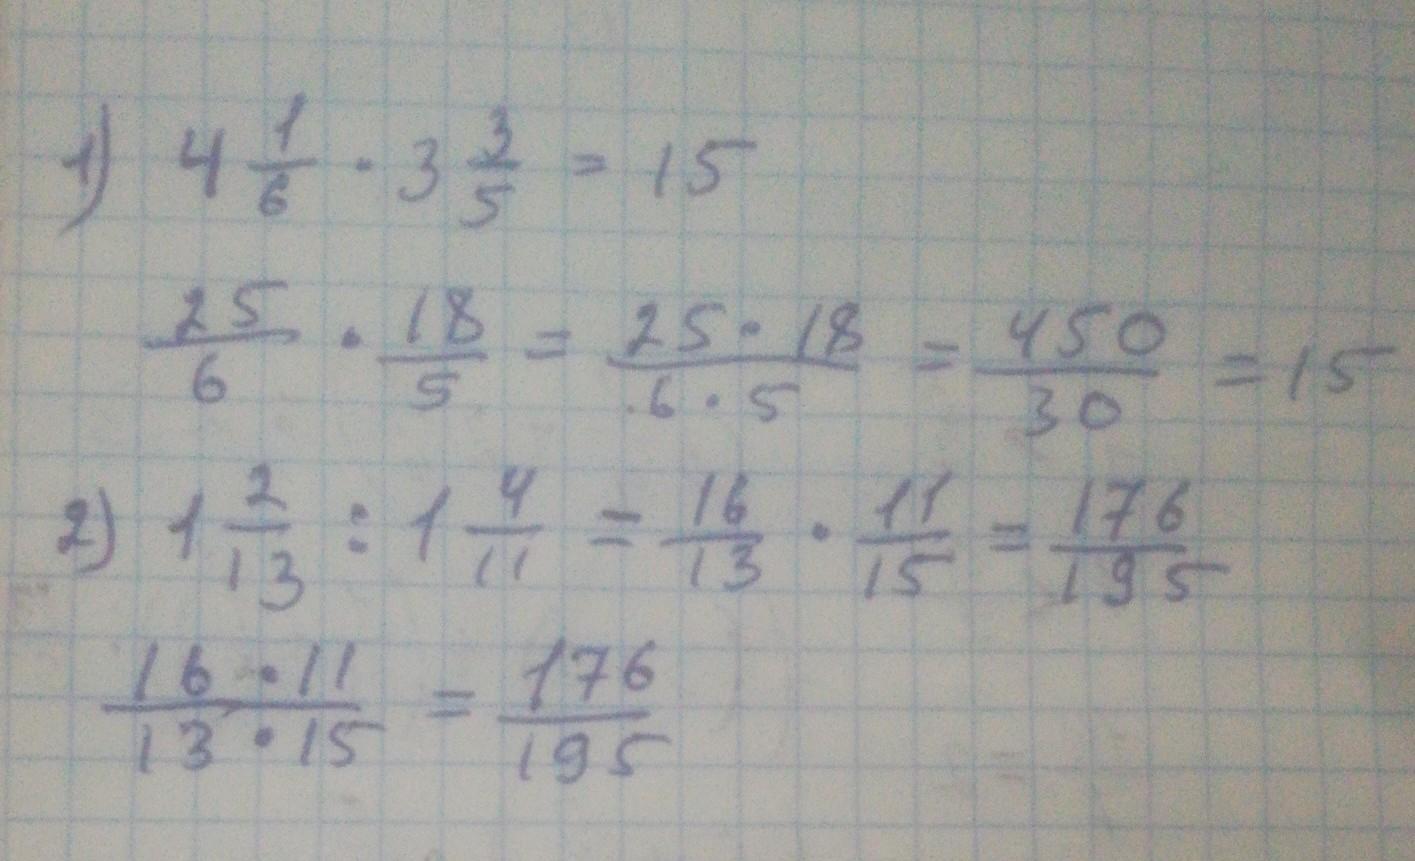 1) 4 1/6 · 3 3/5 = 15
25/6 · 18/5 = 25·18/6·5 = 450/30 = 15
2) 1 2/13 : 1 4/11 = 16/13 · 11/15 = 176/195
16·11/13·15 = 176/195